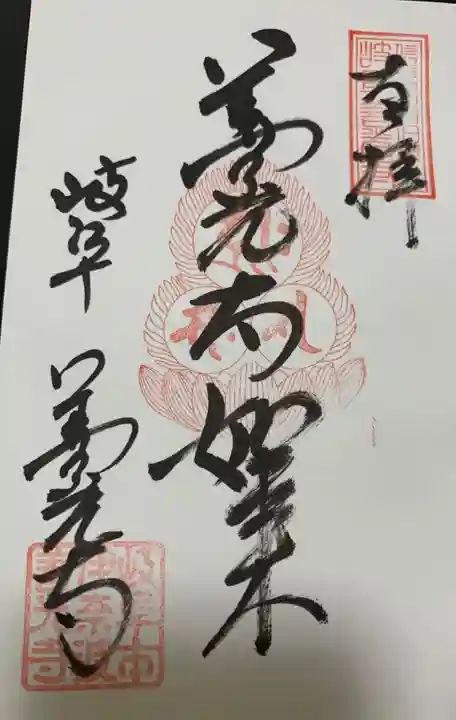 奉拝
善光寺如来
岐阜 善光寺